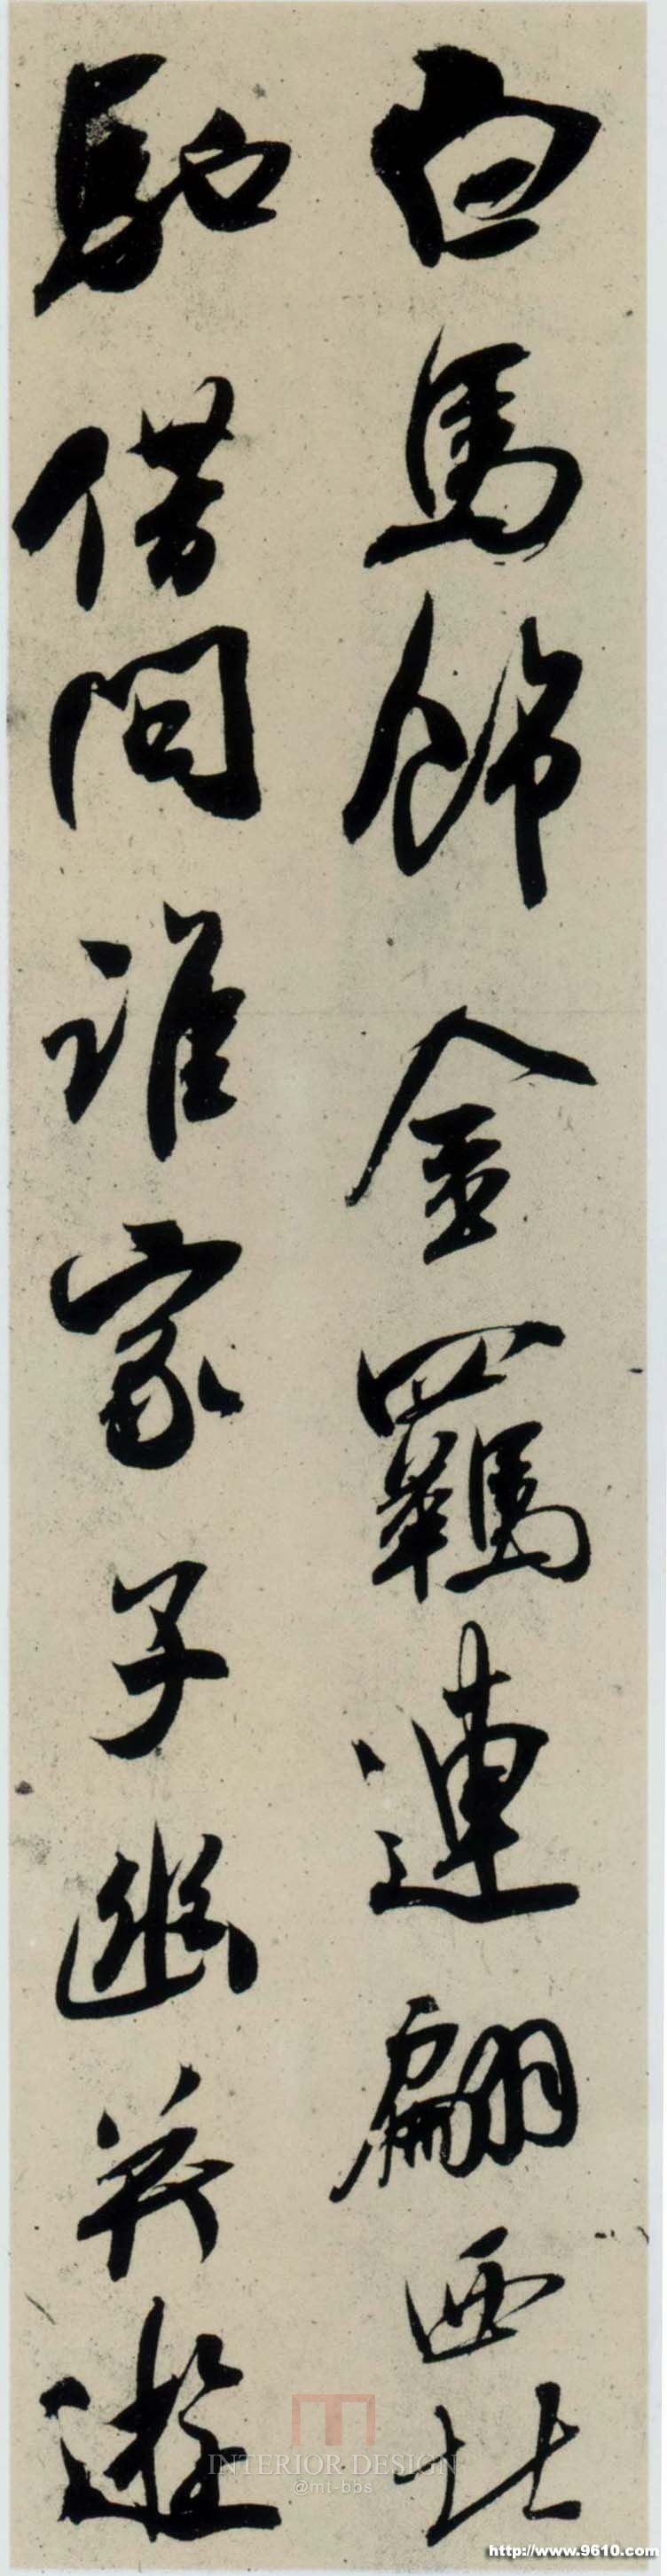 白馬飾金羈連翩西北
馳借問誰家子幽并遊
INTERIOR DESIGN
@mt-bbs
http://www.9610.com